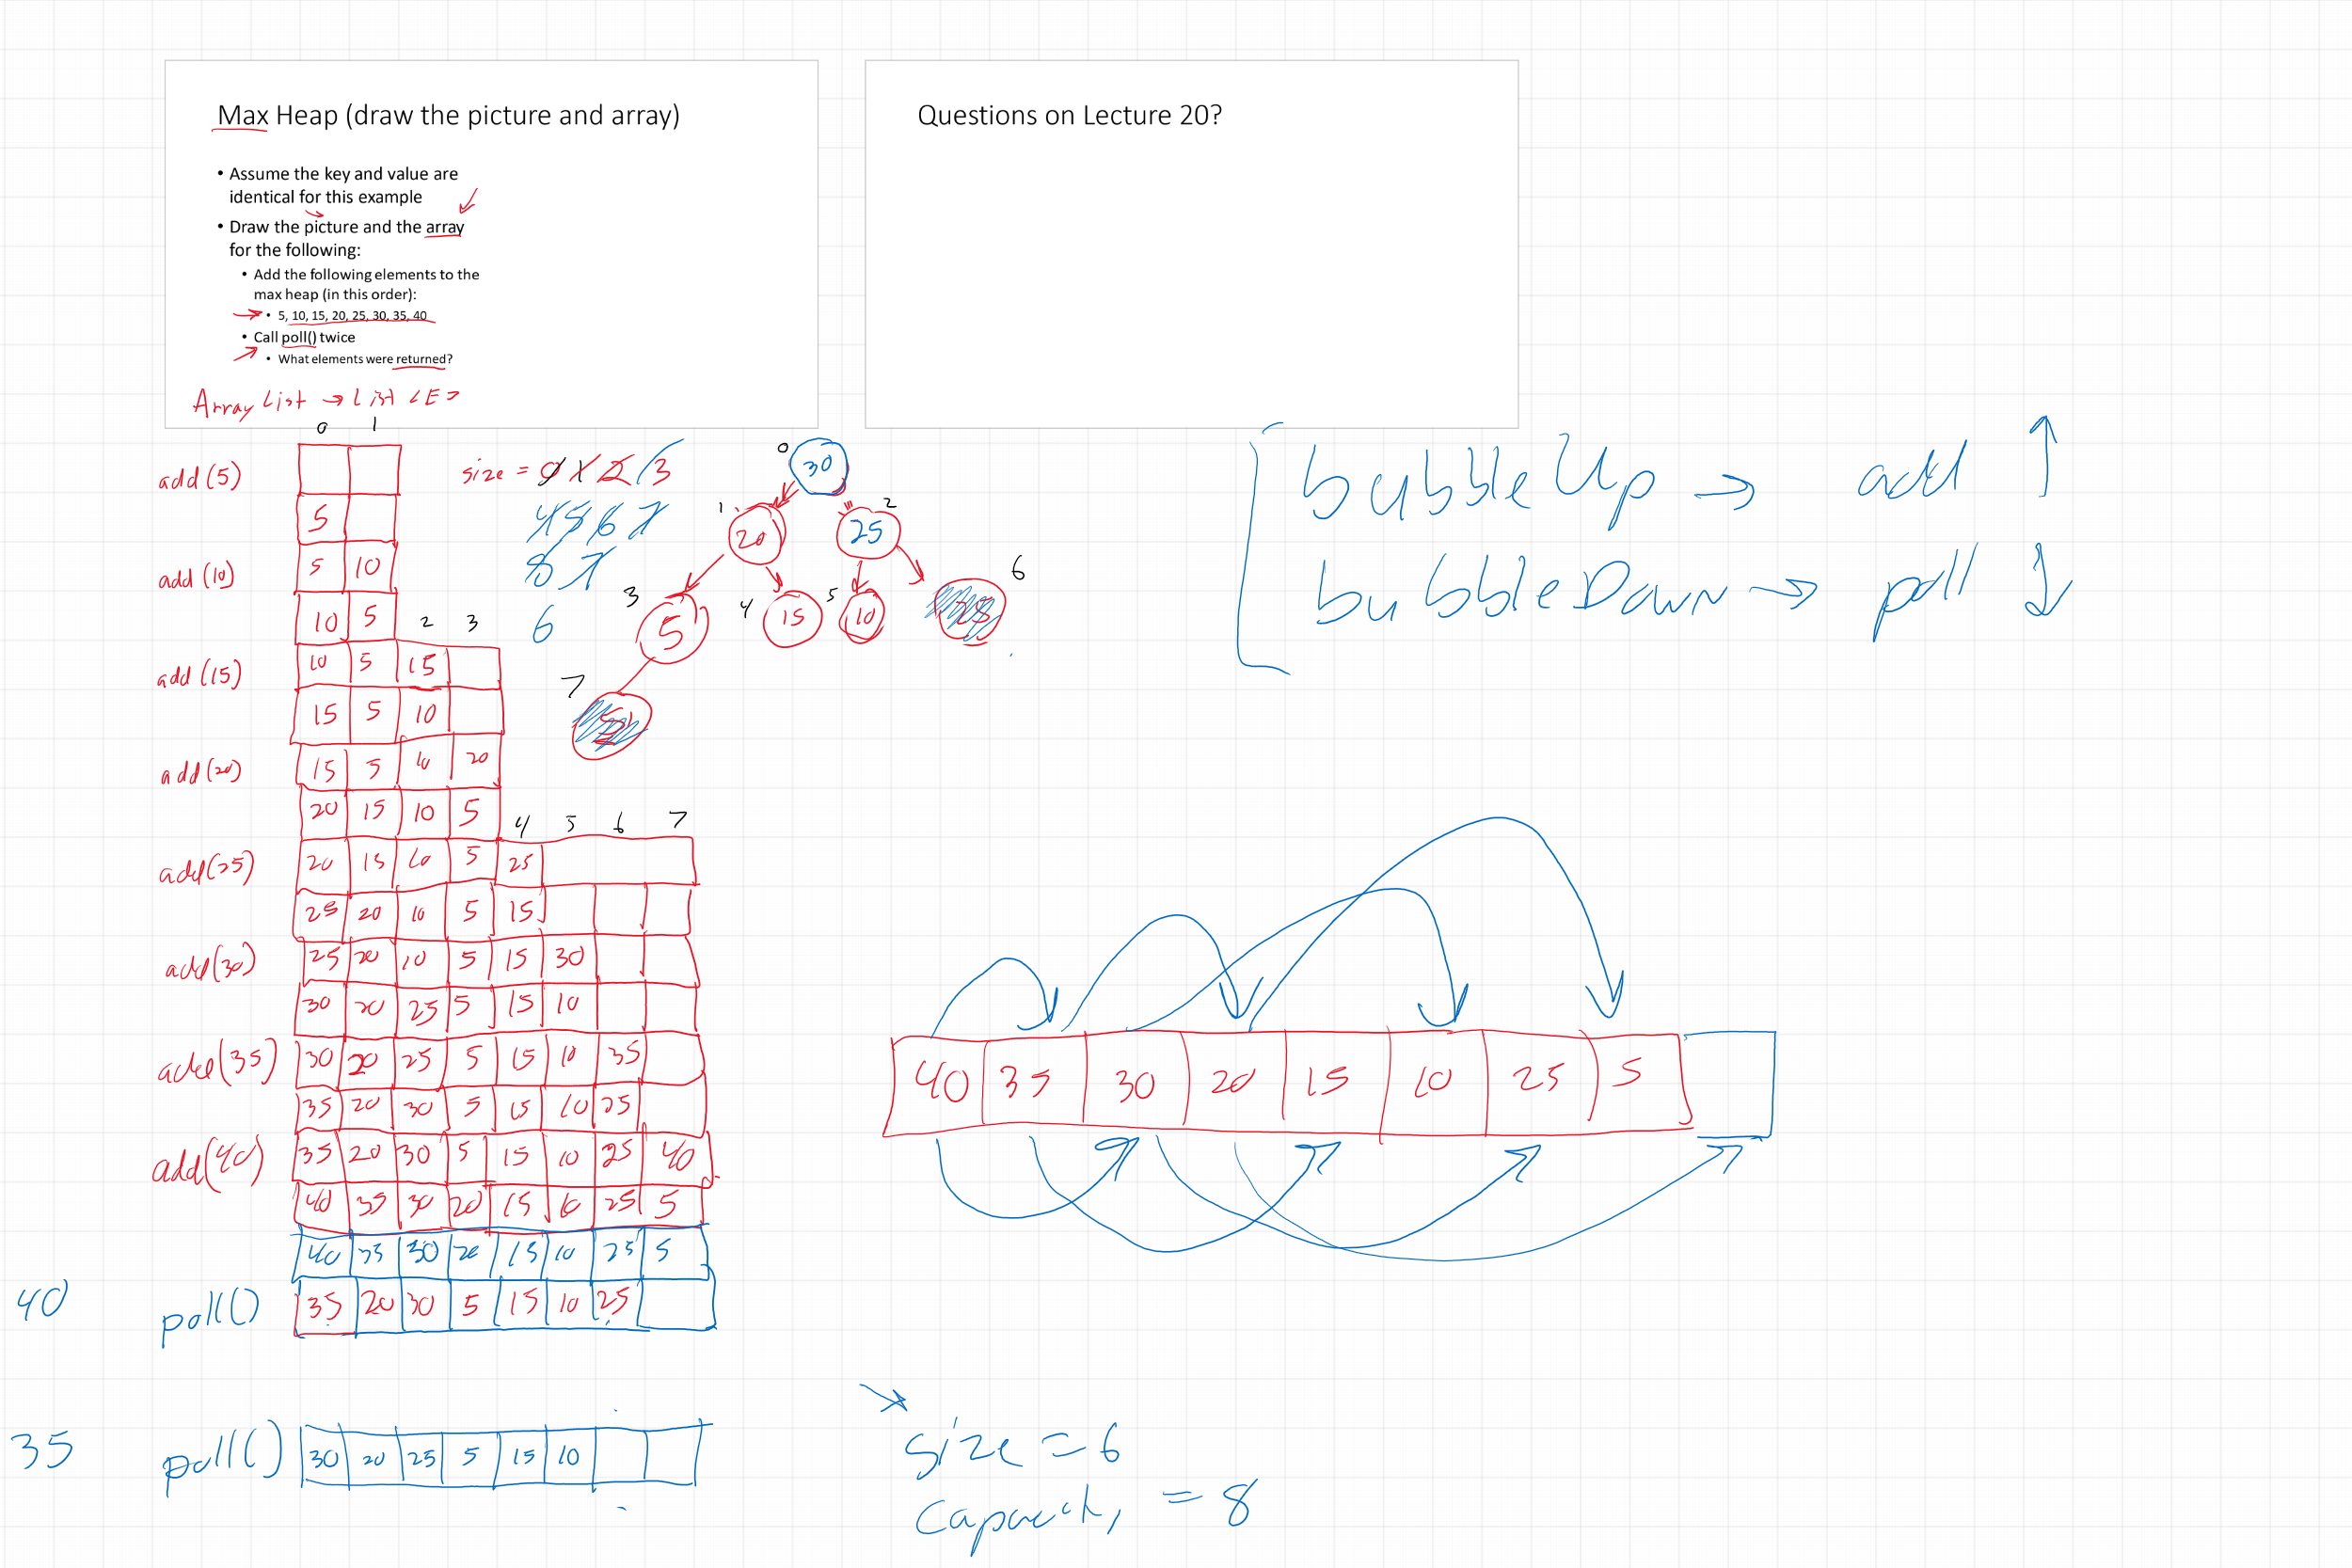 Max Heap (draw the picture and array)
• Assume the key and value are
identical for this example
• Draw the picture and the array
for the following:
• Add the following elements to the
max heap (in this order):
• 5, 10, 15, 20, 25, 30, 35, 40
• Call poll() twice
• What elements were returned?
Array List → List <E>
Questions on Lecture 20?
0 1
add(5)
5
add(10) 5 10
10 5 2 3
add(15) 10 5 15
15 5 10
add(20) 15 5 10 20
20 15 10 5 4 5 6 7
add(25) 20 15 10 5 25
25 20 10 5 15
add(30) 25 20 10 5 15 30
30 20 25 5 15 10
add(35) 30 20 25 5 15 10 35
35 20 30 5 15 10 25
add(40) 35 20 30 5 15 10 25 40
40 35 30 20 15 10 25 5
40 35 30 20 15 10 25 5
40 poll() 35 20 30 5 15 10 25
35 poll() 30 20 25 5 15 10
size = 0 1 2 3
4 5 6 7
8 7
6
0 30
1 20 2 25
3 5 4 15 5 10 6
7
bubbleUp → add ↑
bubbleDown → poll ↓
40 35 30 20 15 10 25 5
size = 6
capacity = 8